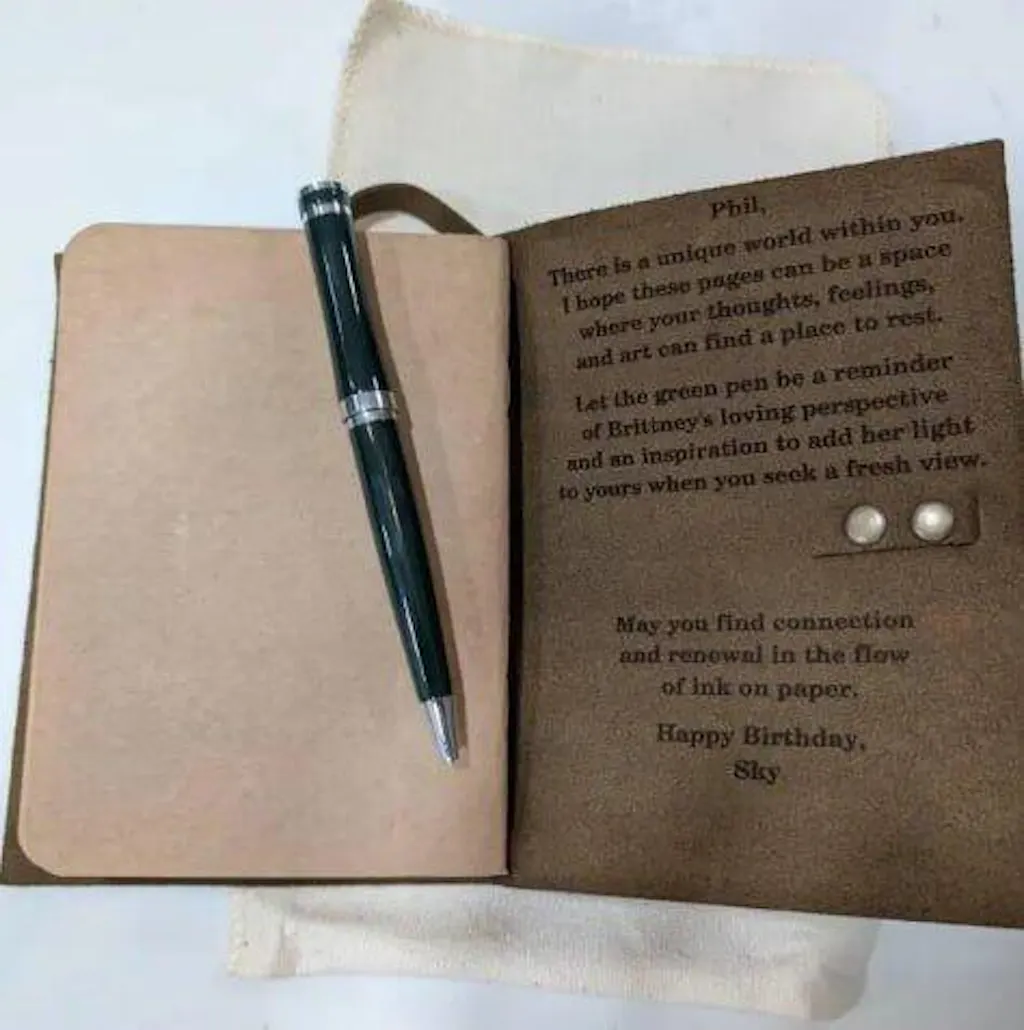 Phil,
There is a unique world within you.
I hope these pages can be a space
where your thoughts, feelings,
and art can find a place to rest.
Let the green pen be a reminder
of Brittney's loving perspective
and an inspiration to add her light
to yours when you seek a fresh view.
May you find connection
and renewal in the flow
of ink on paper.
Happy Birthday,
Sky